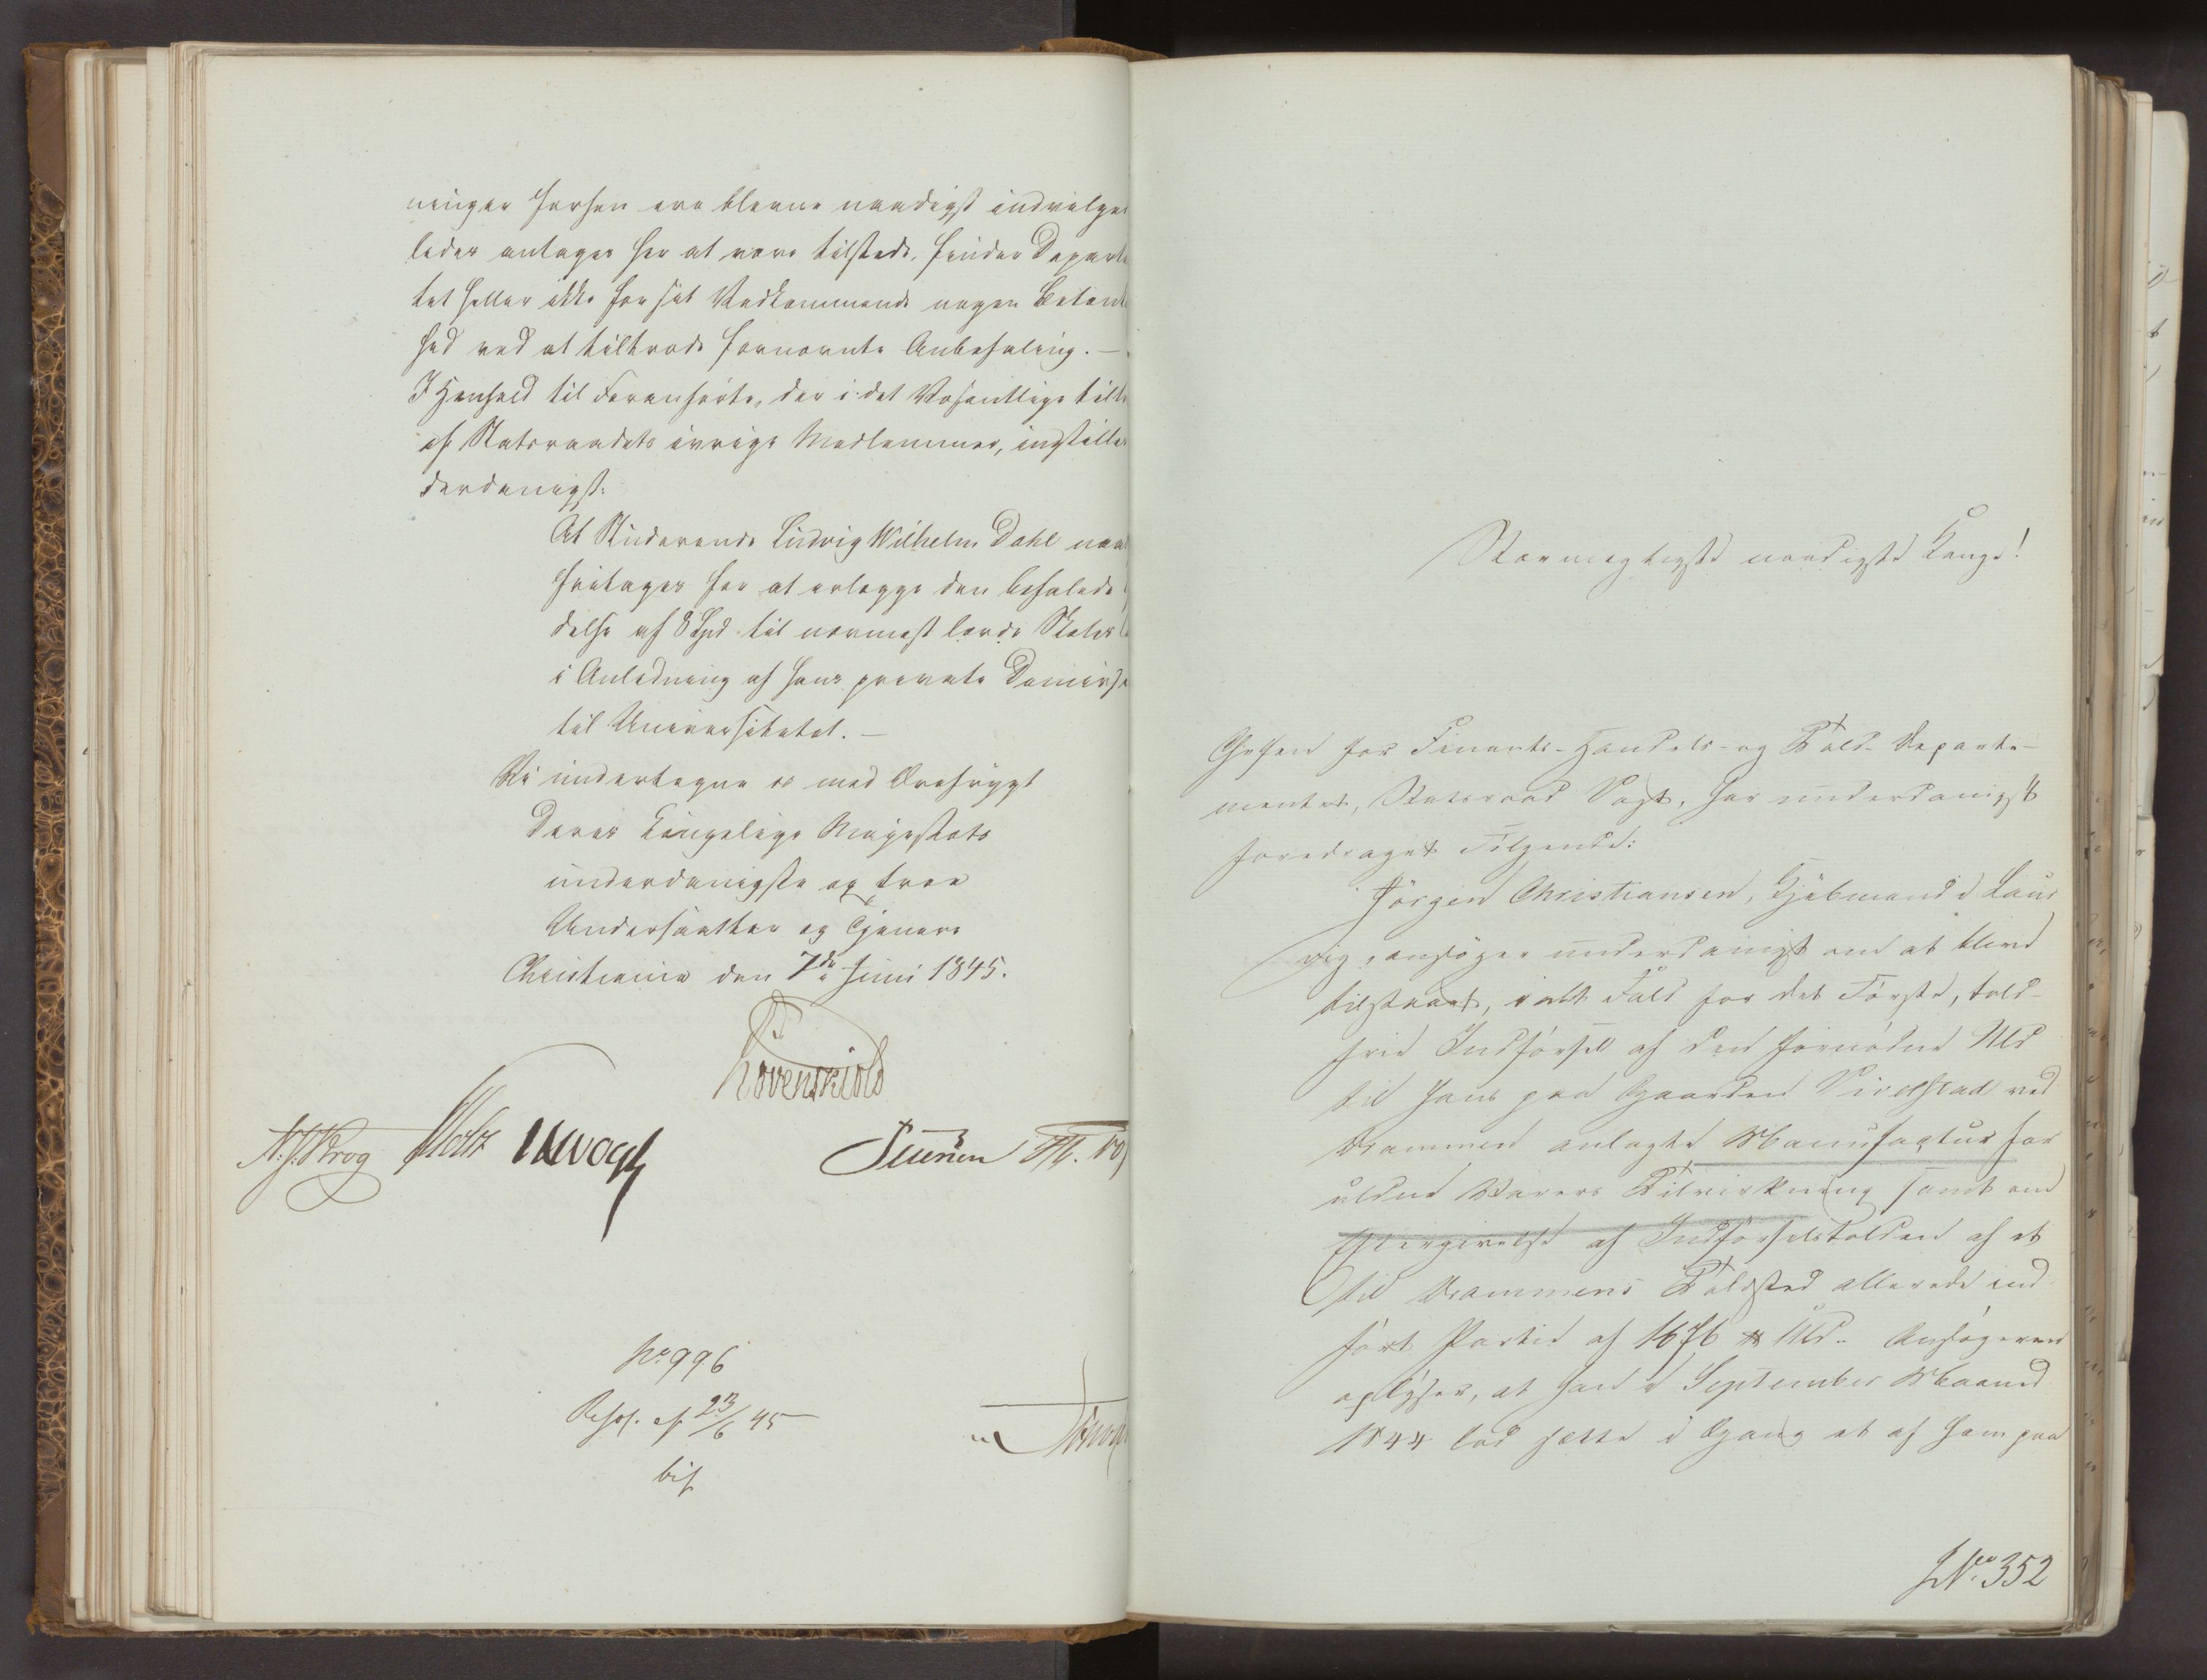 ninger herfra ere blevne naadigst indvilgede
leder antages her at være tilstede, finder Departe
tet heller ikke for sit Vedkommende nogen Betænk
hed ved at tiltræde fornævnte Anbefaling. —
I Henhold til Foranførte, der i det Væsentlige tilt
af Statsraadets øvrige Medlemmer, indstilles
derdanigst:
At Studerende Ludvig Wilhelm Dahl naa
fritages for at erlægge den befalede
delse af 8 Spd til nærmest lærde Skoles
i Anledning af hans private Dimiss
til Universitetet. —
Vi undertegne os med Ærefrygt
Deres Kongelige Majestæts
underdanigste og troe
Undersaatter og Tjenere
Christiania den 7de Juni 1845.
Løvenskiold
N. J. Krog Holst JHVogt
No 996
Resol. af 23/6 45
Stormægtigste naadigste Konge!
Chefen for Finants- Handels- og Told-Departe-
mentet, Statsraad Vogt, har underdanigst
foredraget Følgende:
Jörgen Christiansen, Kjøbmand i Laur
vig, ansøger underdanigst om at blive
tilstaaet, i alt Fald for det Første, told-
frie Indførsel af den fornødne Uld
til hans paa Gaarden ved
Drammen anlagte Manufactur for
uldne Varers Tilvirkning samt om
Eftergivelse af Indførselstolden af et
til Drammens Toldsted allerede ind-
ført Partie af 1676 ℔ Uld. Ansøgeren
oplyser, at han i September Maaned
1844 lod sætte i Gang et af ham paa
JNo 352